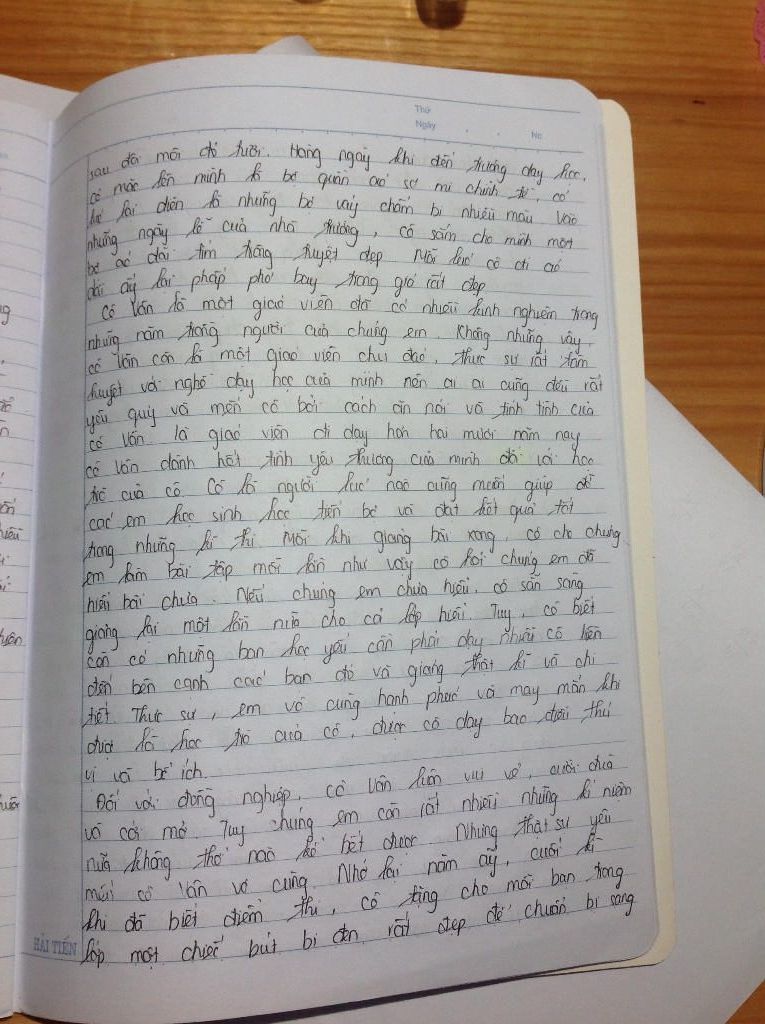 Thứ
Ngày
No
sau đôi môi đỏ tươi. Hàng ngày khi đến trường dạy học,
cô mặc lên mình là bộ quần áo sơ mi chỉnh tề, có
lúc lại diện là những bộ váy chấm bi nhiều màu vào
những ngày lễ của nhà trường, cô sắm cho mình một
bộ áo dài tím trắng tuyệt đẹp mỗi lúc cô đi áo
dài ấy lại phấp phơ bay trong gió rất đẹp
Cô Vân là một giáo viên đã có nhiều kinh nghiệm trong
những năm trong người của chúng em. Không những vậy,
cô Vân còn là một giáo viên chu đáo, thực sự rất tâm
huyết với nghề dạy học của mình nên ai ai cũng đều rất
yêu quý và mến cô bởi cách ăn nói và tính tình của
cô Vân là giáo viên đi dạy hơn hai mươi năm nay
cô Vân dành hết tình yêu thương của mình đối với học
trò của cô. Cô là người lúc nào cũng muốn giúp đỡ
các em học sinh học tiến bộ và đạt kết quả tốt
trong những kì thi. Mỗi khi giảng bài xong, cô cho chúng
em làm bài tập mỗi lần như vậy cô hỏi chúng em đã
hiểu bài chưa. Nếu chúng em chưa hiểu, cô sẵn sàng
giảng lại một lần nữa cho cả lớp hiểu. Tuy, cô biết
còn có những bạn học yếu cần phải dạy nhiều cô liền
đến bên cạnh các bạn đó và giảng thật kĩ và chi
tiết. Thực sự, em vô cùng hạnh phúc và may mắn khi
được là học trò của cô, được cô dạy bao điều thú
vị và bổ ích.
Đối với đồng nghiệp, cô Vân luôn vui vẻ, cười đùa
và cởi mở. Tuy chúng em còn rất nhiều những kỉ niệm
nữa không thể nào kể hết được. Nhưng thật sự yêu
mến cô Vân vô cùng. Nhớ lại năm ấy, cuối kì
khi đã biết điểm thi, cô tặng cho mỗi bạn trong
lớp một chiếc bút bi đen rất đẹp để chuẩn bị sang
HẢI TIẾN